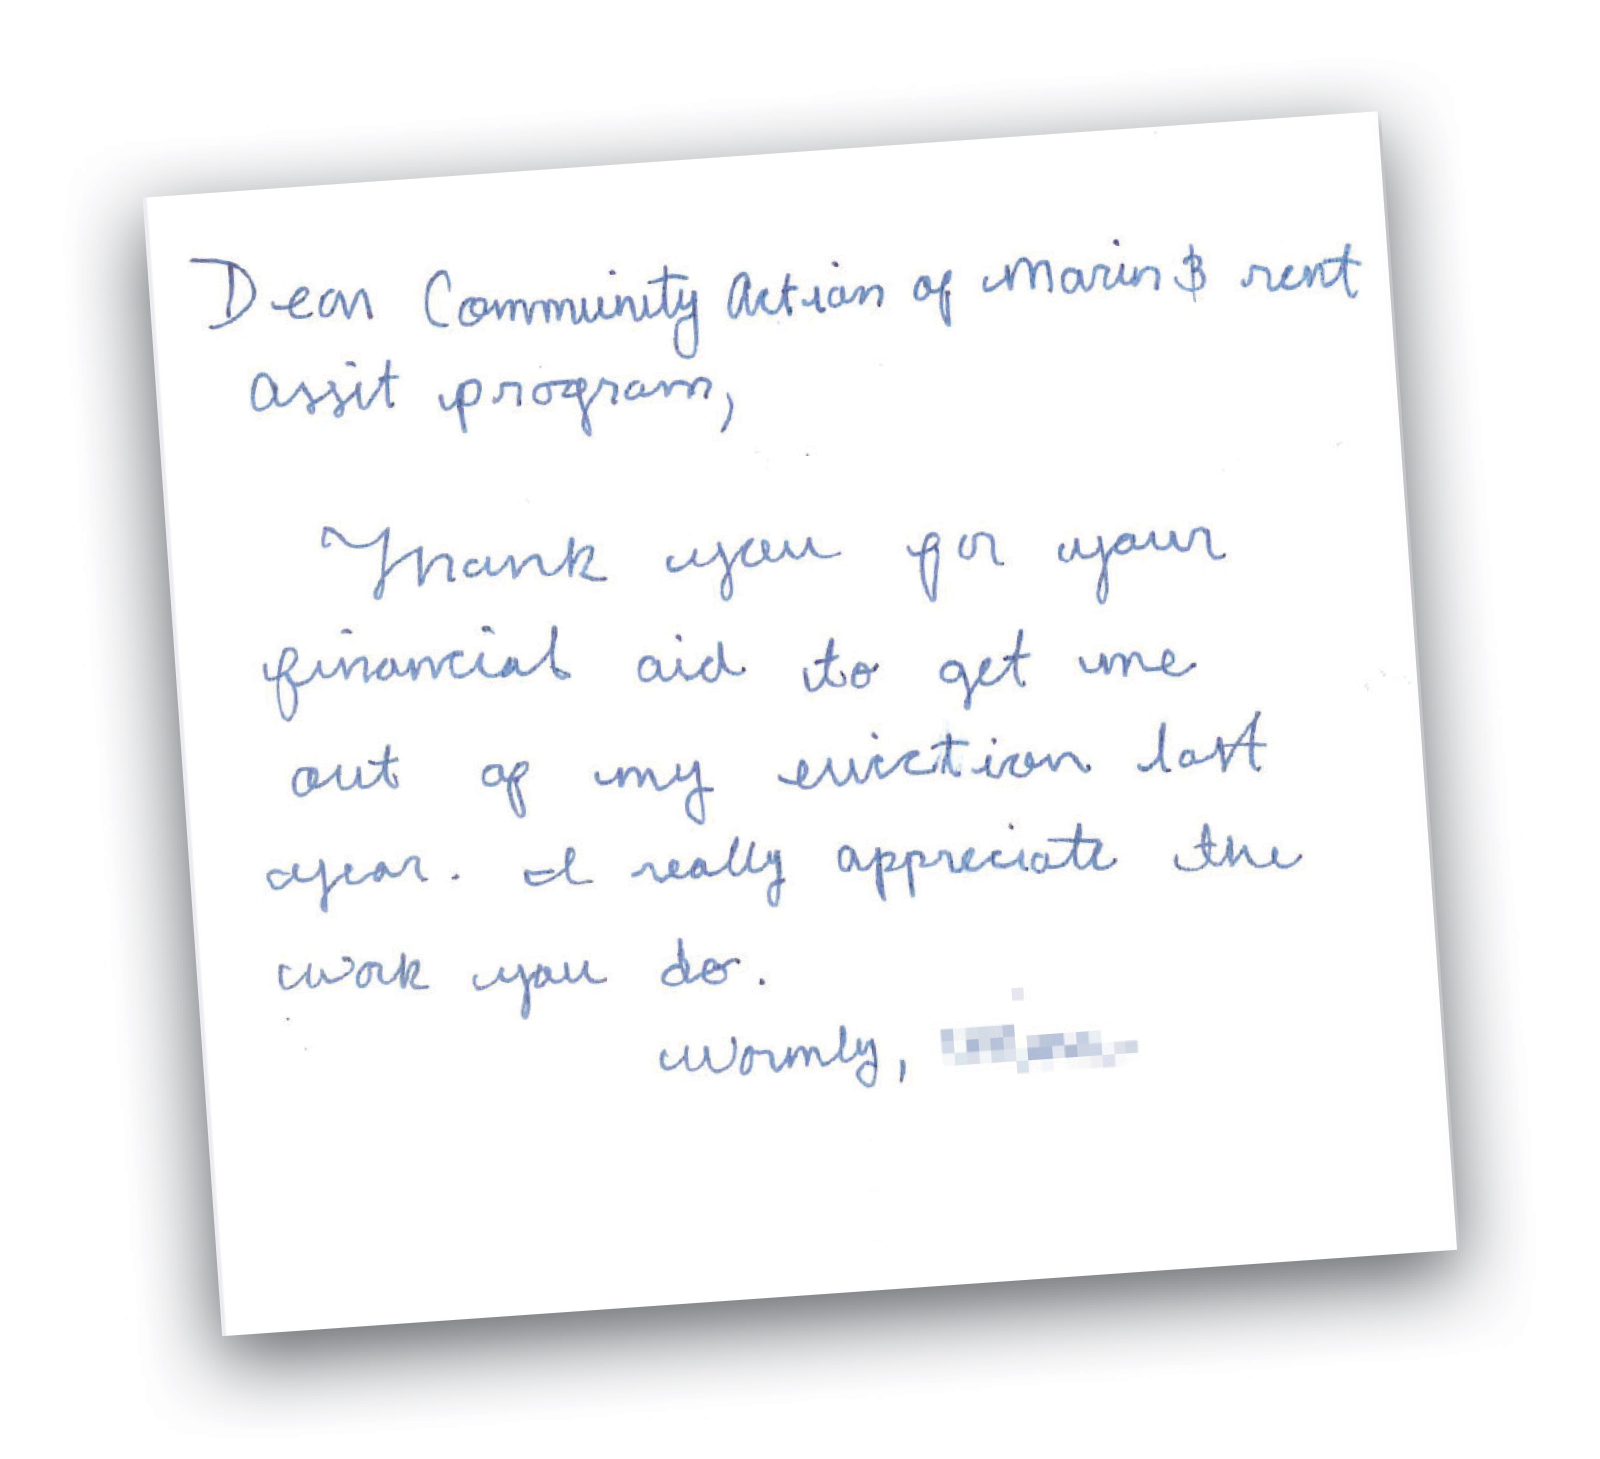 Dear Community Action of Marin $ rent
assit program,
Thank you for your
financial aid to get me
out of my eviction last
year. I really appreciate the
work you do.
Warmly,